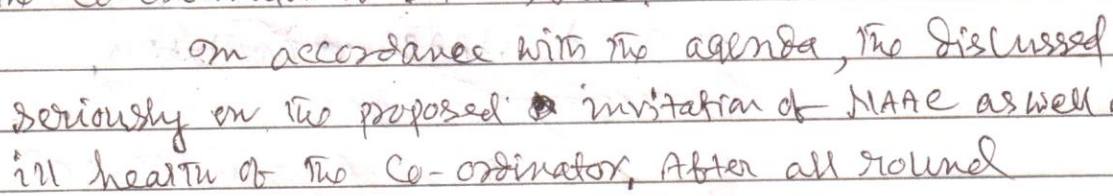 In accordance with the agenda, the discussed
seriously on the proposed invitation of NAAC as well
ill health of the Co-ordinator, After all round